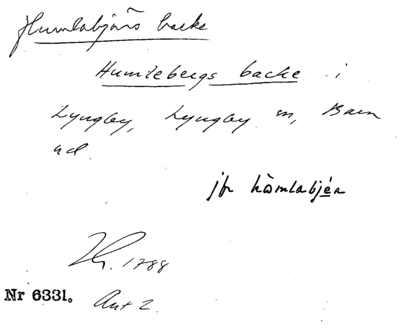 Humlabjärs backe
Humlebergs backe i
Lyngby, Lyngby sn, Bara
hd.
jfr hòmlabjér
1788
Nr 6331. Ant 2.